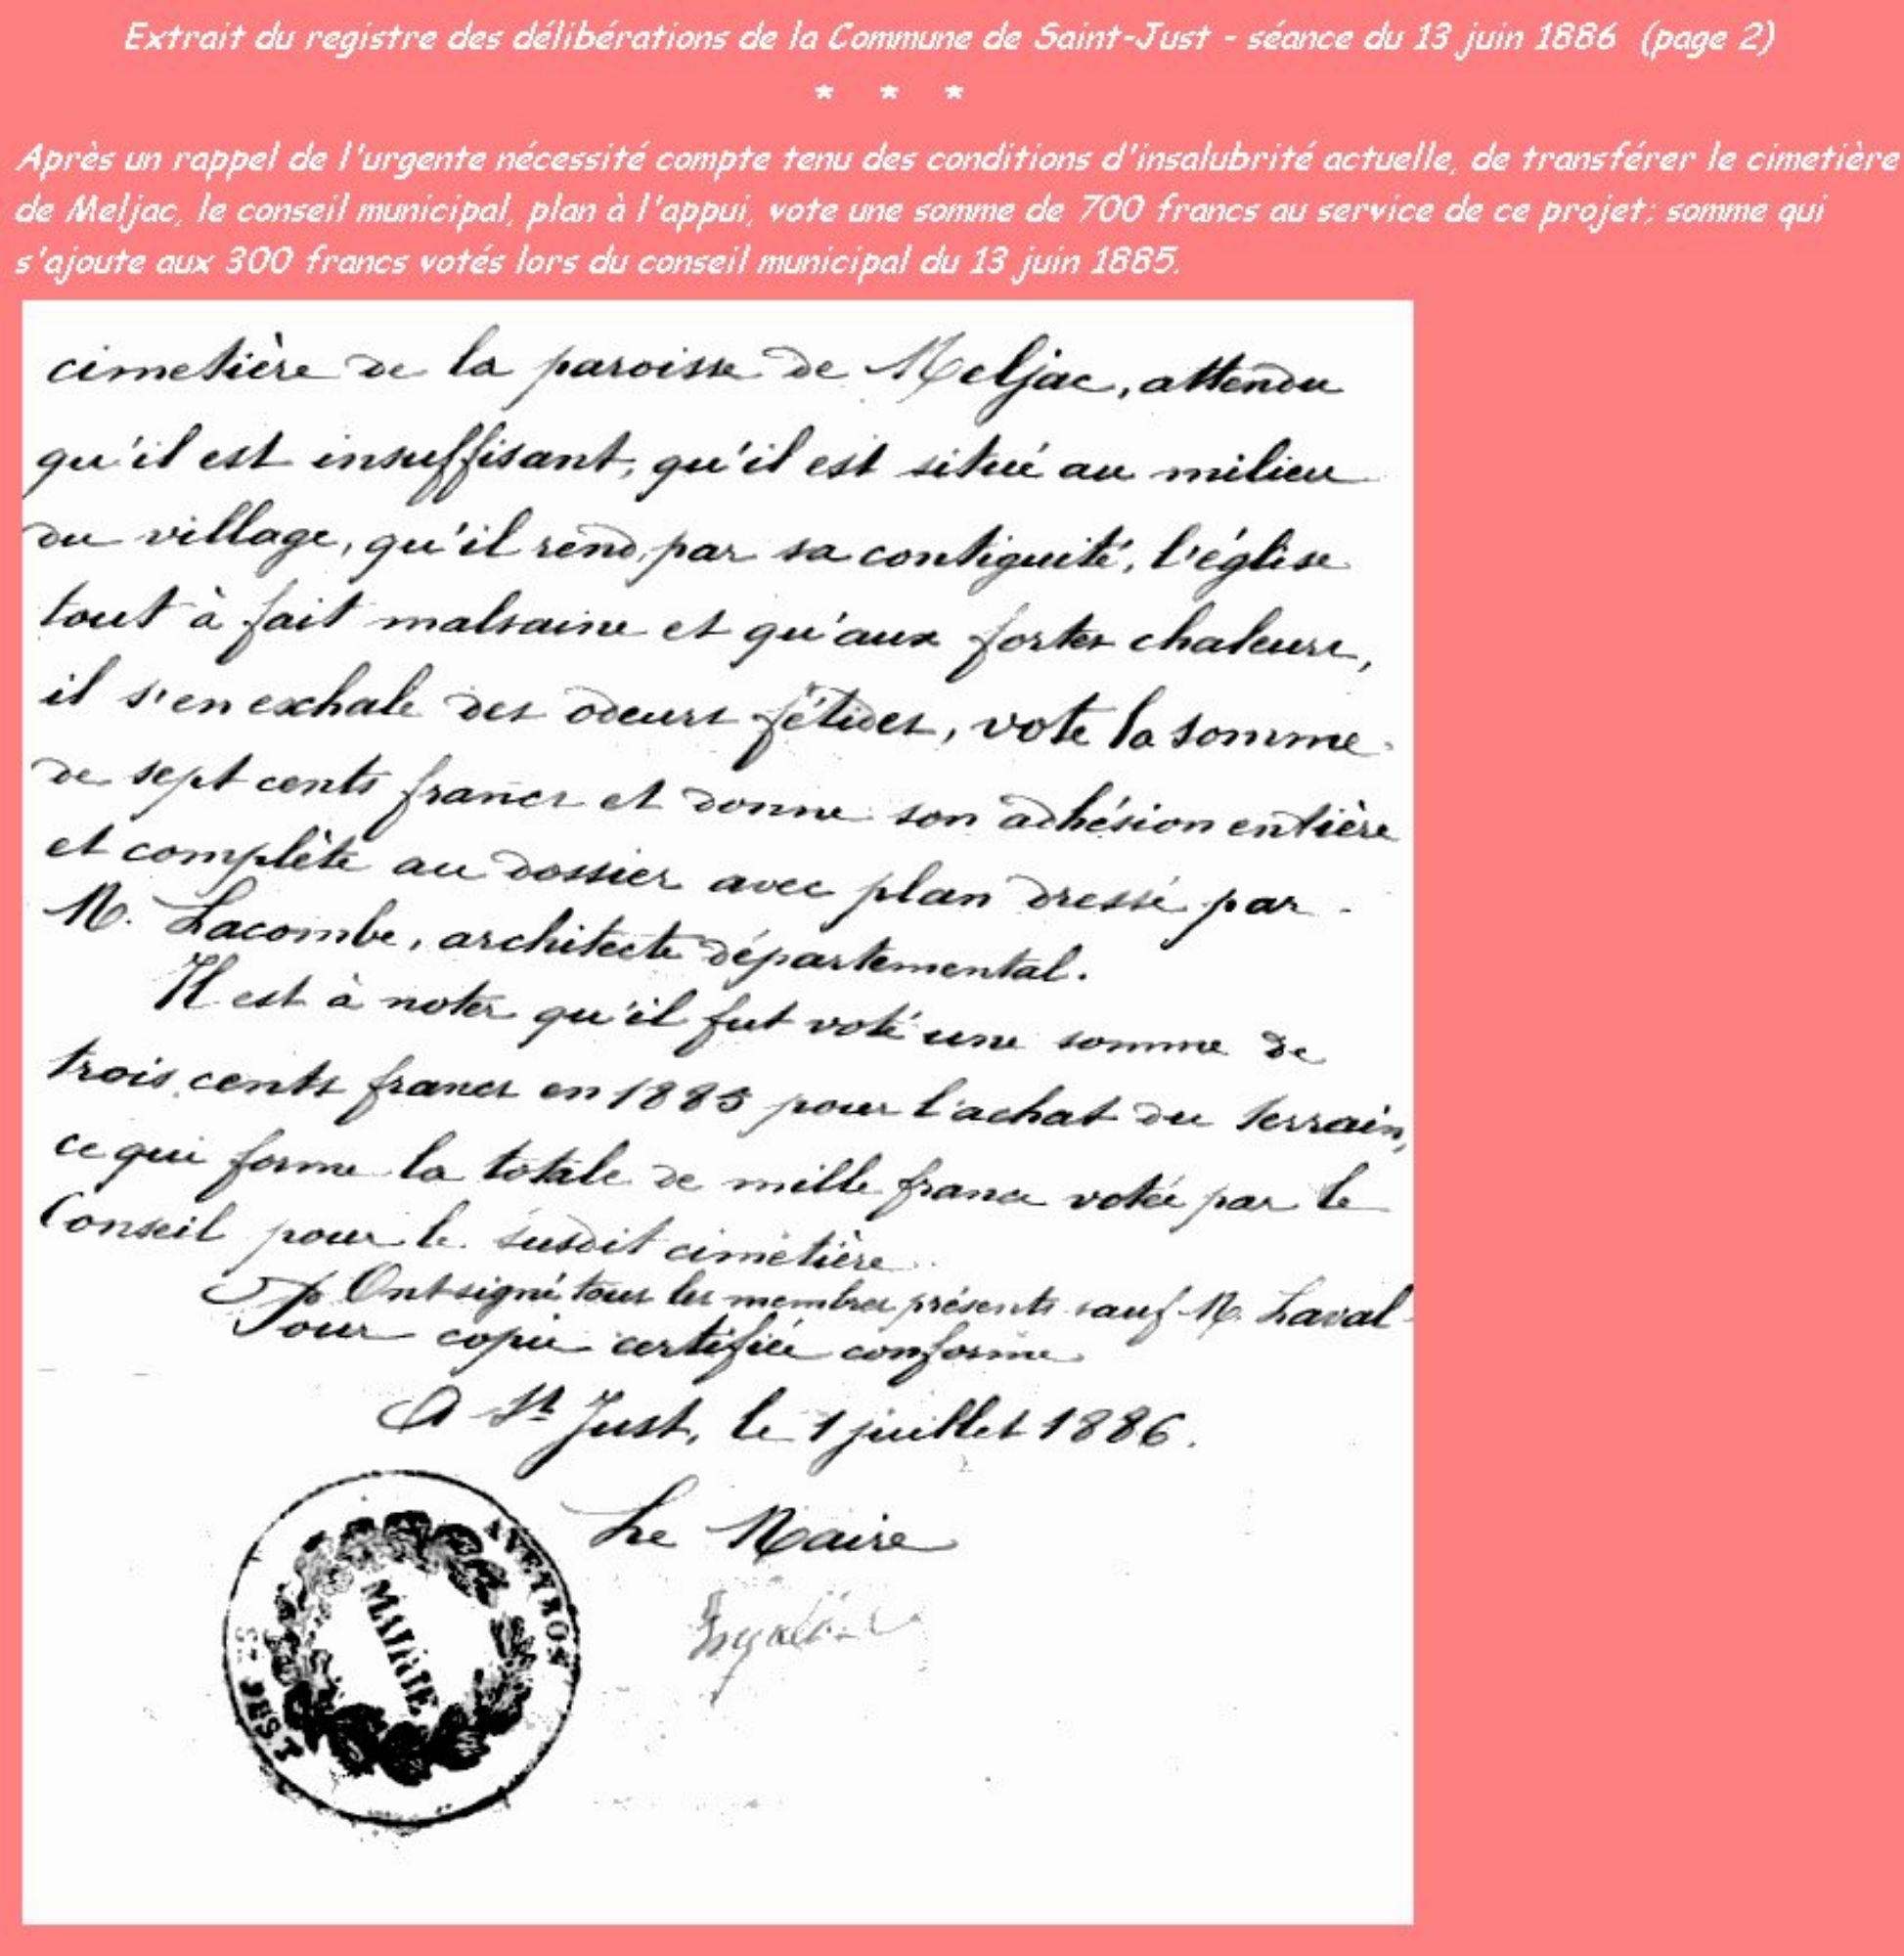 Extrait du registre des délibérations de la Commune de Saint-Just - séance du 13 juin 1886 (page 2)
* * *
Après un rappel de l'urgente nécessité compte tenu des conditions d'insalubrité actuelle, de transférer le cimetière
de Meljac, le conseil municipal, plan à l'appui, vote une somme de 700 francs au service de ce projet; somme qui
s'ajoute aux 300 francs votés lors du conseil municipal du 13 juin 1885.
cimetière de la paroisse de Meljac, attendu
qu'il est insuffisant, qu'il est situé au milieu
du village, qu'il rend, par sa contiguité, l'église
tout à fait malsaine et qu'aux fortes chaleurs,
il s'en exchale des odeurs fétides, vote la somme
de sept cents francs et donne son adhésion entière
et complète au dossier avec plan dressé par
M. Lacombe, architecte départemental.
Il est à noter qu'il fut voté une somme de
trois cents francs en 1885 pour l'achat du terrain,
ce qui forme la totale de mille francs votée par le
Conseil pour le susdit cimetière.
Ont signé tous les membres présents sauf M. Laval
Pour copie certifiée conforme
A St Just, le 1 juillet 1886.
Le Maire
AVEYRON
MAIRIE
St JUST